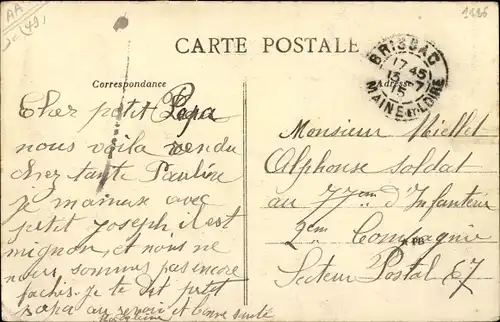 AA
(49)
1126
CARTE POSTALE
BRISSAC
17 45
13 -7
15
MAINE-ET-LOIRE
Correspondance
Adresse
Cher petit Papa
nous voila rendu
chez tante Pauline
je m'amuse avec
petit Joseph il est
mignon, et nous ne
nous sommes pas encore
fachés. Je te dit petit
papa au revoir et bonne santé
Madeleine
Monsieur Miellet
Alphonse soldat
au 77em d'Infanterie
2em Compagnie
Secteur Postal 67